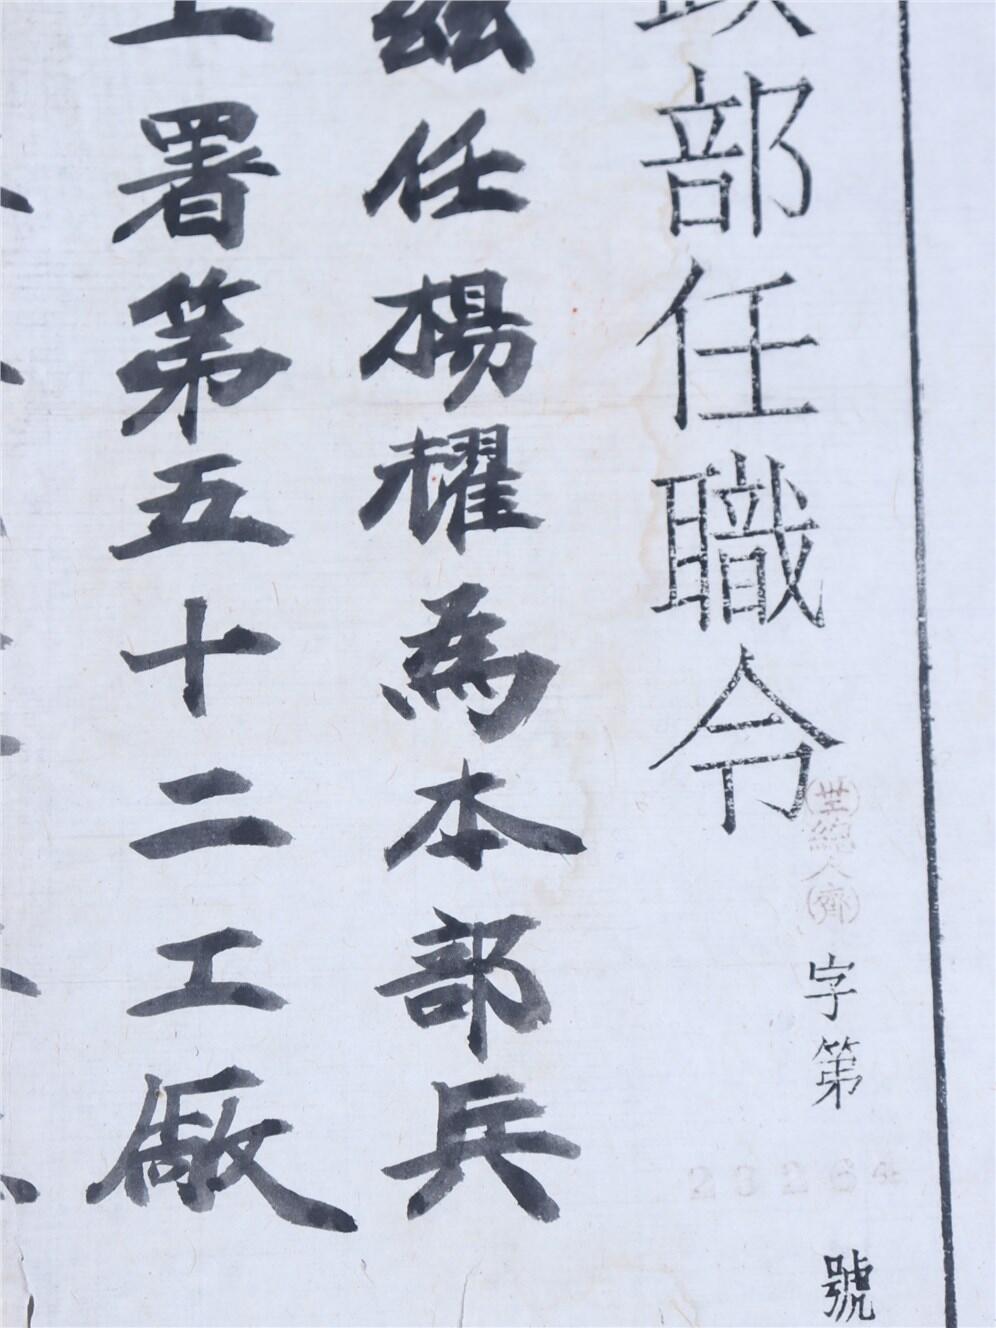 部任職令
㘴總人齊
字第
23264
號
兹任楊耀為本部兵
工署第五十二工廠